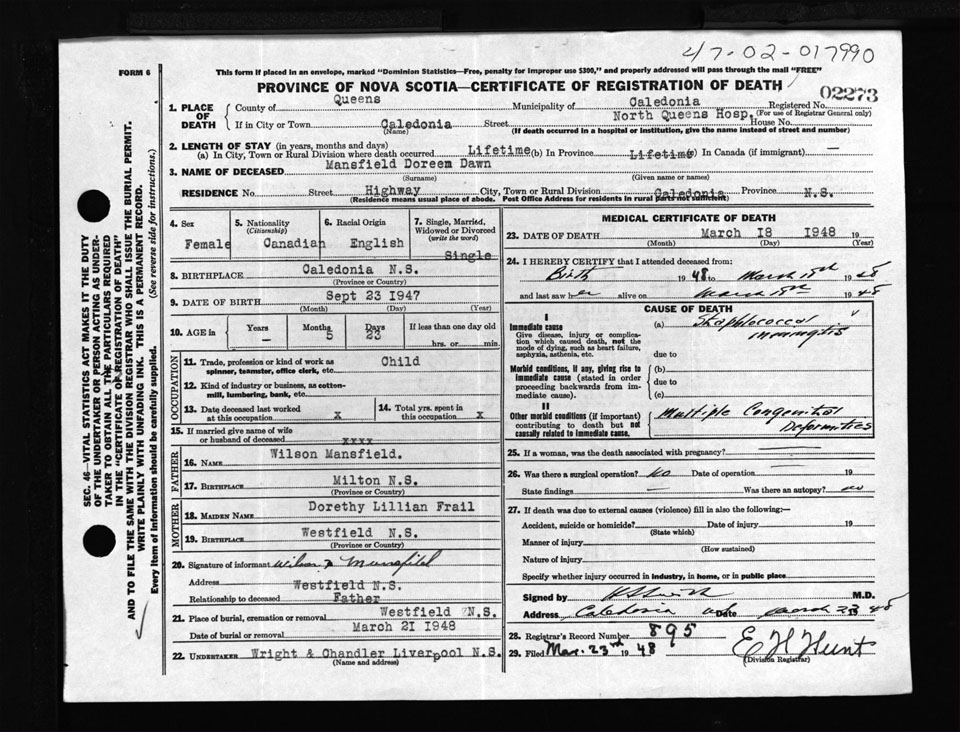 47-02-017990
FORM 6
This form if placed in an envelope, marked "Dominion Statistics—Free, penalty for improper use $300," and properly addressed will pass through the mail "FREE"
PROVINCE OF NOVA SCOTIA—CERTIFICATE OF REGISTRATION OF DEATH
02273
1. PLACE OF DEATH
County of Queens Municipality of Caledonia Registered No.
(For use of Registrar General only)
If in City or Town Caledonia Street North Queens Hosp. House No.
(Name) (If death occurred in a hospital or institution, give the name instead of street and number)
2. LENGTH OF STAY (in years, months and days)
(a) In City, Town or Rural Division where death occurred Lifetime (b) In Province Lifetime (c) In Canada (if immigrant) —
3. NAME OF DECEASED Mansfield Doreen Dawn
(Surname) (Given name or names)
RESIDENCE No. Street Highway City, Town or Rural Division Caledonia Province N.S.
(Residence means usual place of abode. Post Office Address for residents in rural parts not sufficient)
4. Sex Female
5. Nationality (Citizenship) Canadian
6. Racial Origin English
7. Single, Married, Widowed or Divorced (write the word) Single
8. BIRTHPLACE Caledonia N.S.
(Province or Country)
9. DATE OF BIRTH Sept 23 1947
(Month) (Day) (Year)
10. AGE in Years – Months 5 Days 23 If less than one day old hrs. or min.
OCCUPATION
11. Trade, profession or kind of work as spinner, teamster, office clerk, etc. Child
12. Kind of industry or business, as cotton-mill, lumbering, bank, etc.
13. Date deceased last worked at this occupation X
14. Total yrs. spent in this occupation X
15. If married give name of wife or husband of deceased xxxx
FATHER
16. NAME Wilson Mansfield.
17. BIRTHPLACE Milton N.S.
(Province or Country)
MOTHER
18. MAIDEN NAME Dorethy Lillian Frail
19. BIRTHPLACE Westfield N.S.
(Province or Country)
20. Signature of informant Wilson Mansfield
Address Westfield N.S.
Relationship to deceased Father
21. Place of burial, cremation or removal Westfield N.S.
Date of burial or removal March 21 1948
22. UNDERTAKER Wright & Chandler Liverpool N.S.
(Name and address)
MEDICAL CERTIFICATE OF DEATH
23. DATE OF DEATH March 18 1948 19
(Month) (Day) (Year)
24. I HEREBY CERTIFY that I attended deceased from:
Birth 1948 to March 18th 1948
and last saw her alive on March 18th 1948
CAUSE OF DEATH
I
Immediate cause
Give disease, injury or complication which caused death, not the mode of dying, such as heart failure, asphyxia, asthenia, etc.
(a) Staphlococcal meningitis
due to
Morbid conditions, if any, giving rise to immediate cause (stated in order proceeding backwards from immediate cause).
(b)
due to
(c)
II
Other morbid conditions (if important) contributing to death but not causally related to immediate cause.
Multiple Congenital Deformities
25. If a woman, was the death associated with pregnancy? —
26. Was there a surgical operation? no Date of operation — 19
State findings — Was there an autopsy? no
27. If death was due to external causes (violence) fill in also the following:—
Accident, suicide or homicide? Date of injury 19
(State which)
Manner of injury
(How sustained)
Nature of injury
Specify whether injury occurred in industry, in home, or in public place
Signed by M.D.
Address Caledonia Date March 23 1948
28. Registrar's Record Number 895
29. Filed Mar. 23rd 1948 E H Hunt
(Division Registrar)
SEC. 46—VITAL STATISTICS ACT MAKES IT THE DUTY
OF THE UNDERTAKER OR PERSON ACTING AS UNDER-
TAKER TO OBTAIN ALL THE PARTICULARS REQUIRED
IN THE "CERTIFICATE OF REGISTRATION OF DEATH"
AND TO FILE THE SAME WITH THE DIVISION REGISTRAR WHO SHALL ISSUE THE BURIAL PERMIT.
WRITE PLAINLY WITH UNFADING INK. THIS IS A PERMANENT RECORD.
Every item of Information should be carefully supplied. (See reverse side for instructions.)